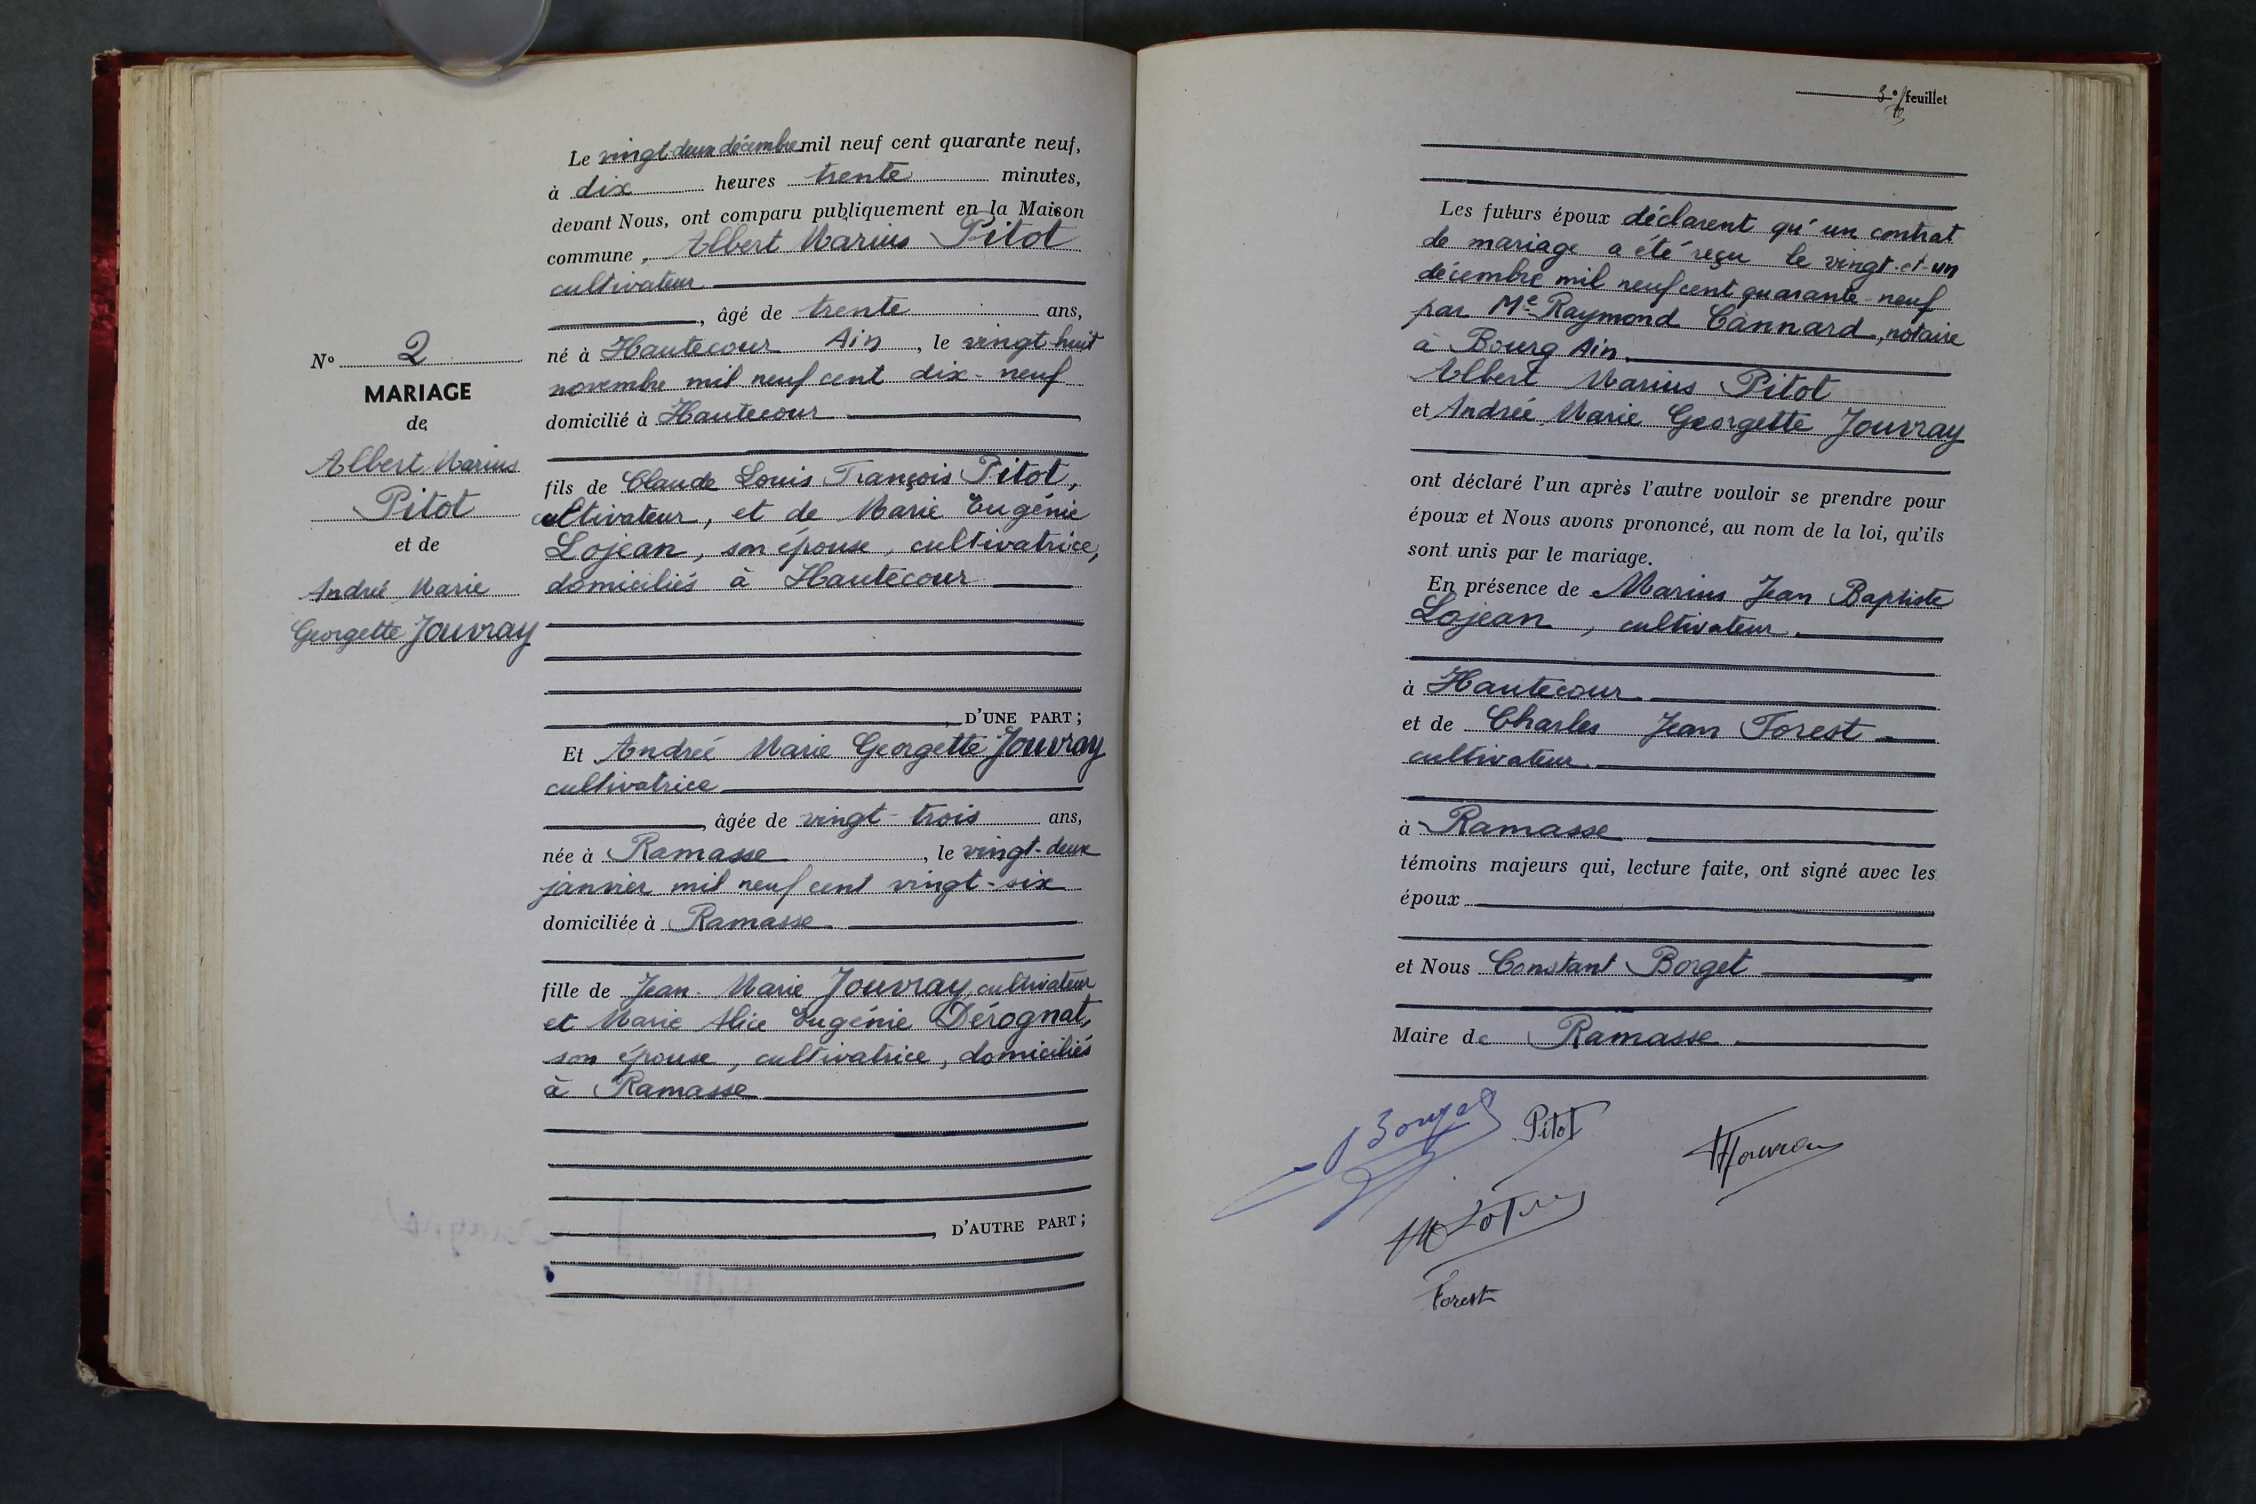 Le vingt-deux décembre mil neuf cent quarante neuf,
à dix heures trente minutes,
devant Nous, ont comparu publiquement en la Maison
commune, Albert Marius Pitot
cultivateur
, âgé de trente ans,
né à Hautecour Ain, le vingt-huit
novembre mil neuf cent dix-neuf
domicilié à Hautecour
fils de Claude Louis François Pitot,
cultivateur, et de Marie Eugénie
Lojean, son épouse, cultivatrice,
domiciliés à Hautecour
D'UNE PART ;
Et Andrée Marie Georgette Jouvray
cultivatrice
, âgée de vingt-trois ans,
née à Ramasse, le vingt-deux
janvier mil neuf cent vingt-six
domiciliée à Ramasse
fille de Jean-Marie Jouvray, cultivateur
et Marie Alice Eugénie Dérognat,
son épouse, cultivatrice, domiciliés
à Ramasse
, D'AUTRE PART ;
N° 2
MARIAGE
de
Albert Marius
Pitot
et de
André Marie
Georgette Jouvray
3e feuillet
Les futurs époux déclarent qu'un contrat
de mariage a été reçu le vingt-et-un
décembre mil neuf cent quarante-neuf
par Me Raymond Cannard, notaire
à Bourg Ain.
Albert Marius Pitot
et Andrée Marie Georgette Jouvray
ont déclaré l'un après l'autre vouloir se prendre pour
époux et Nous avons prononcé, au nom de la loi, qu'ils
sont unis par le mariage.
En présence de Marius Jean Baptiste
Lojean, cultivateur.
à Hautecour
et de Charles Jean Forest
cultivateur
à Ramasse
témoins majeurs qui, lecture faite, ont signé avec les
époux
et Nous Constant Borget
Maire de Ramasse
Borget Pitot
AJouvray
Forest